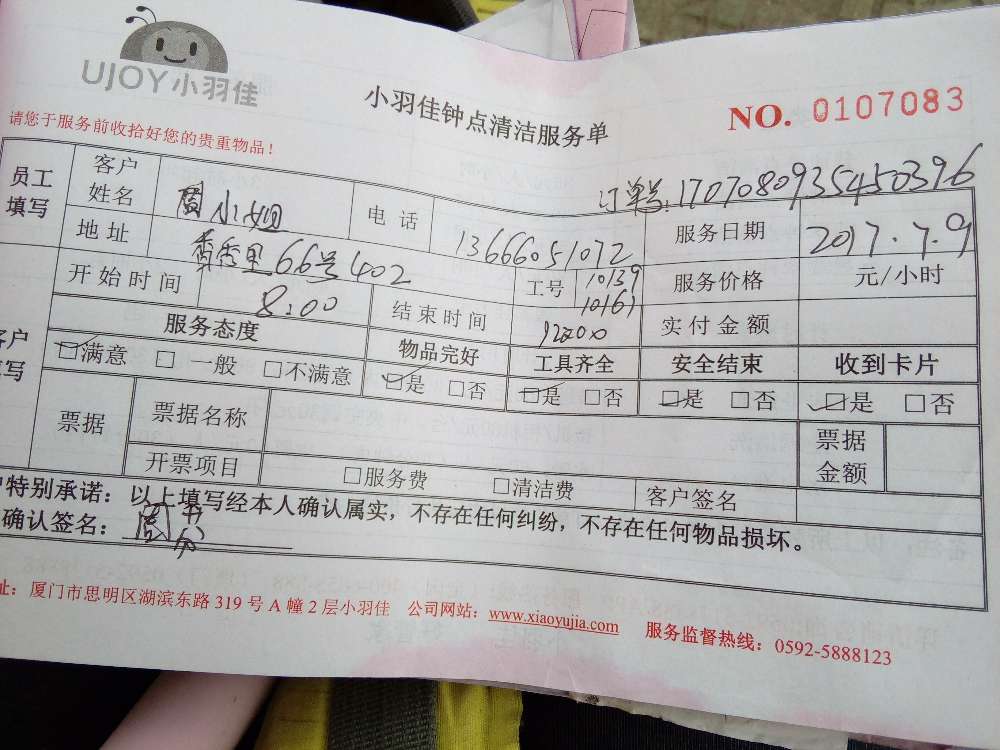 UJOY小羽佳
小羽佳钟点清洁服务单
NO. 0107083
请您于服务前收拾好您的贵重物品！
订单号:1707080935450396
员工填写 客户姓名 周小姐 电话 13666051072 服务日期 2017.7.9
地址 香秀里66号402 工号 10139 10161 服务价格 元/小时
开始时间 8:00 结束时间 实付金额
客户填写 服务态度 物品完好 工具齐全 安全结束 收到卡片
☑满意 □一般 □不满意 ☑是 □否 ☑是 □否 ☑是 □否 ☑是 □否
票据 票据名称 票据金额
开票项目 □服务费 □清洁费 客户签名
户特别承诺：以上填写经本人确认属实，不存在任何纠纷，不存在任何物品损坏。
确认签名： 周
址：厦门市思明区湖滨东路319号A幢2层小羽佳 公司网站：www.xiaoyujia.com 服务监督热线：0592-5888123